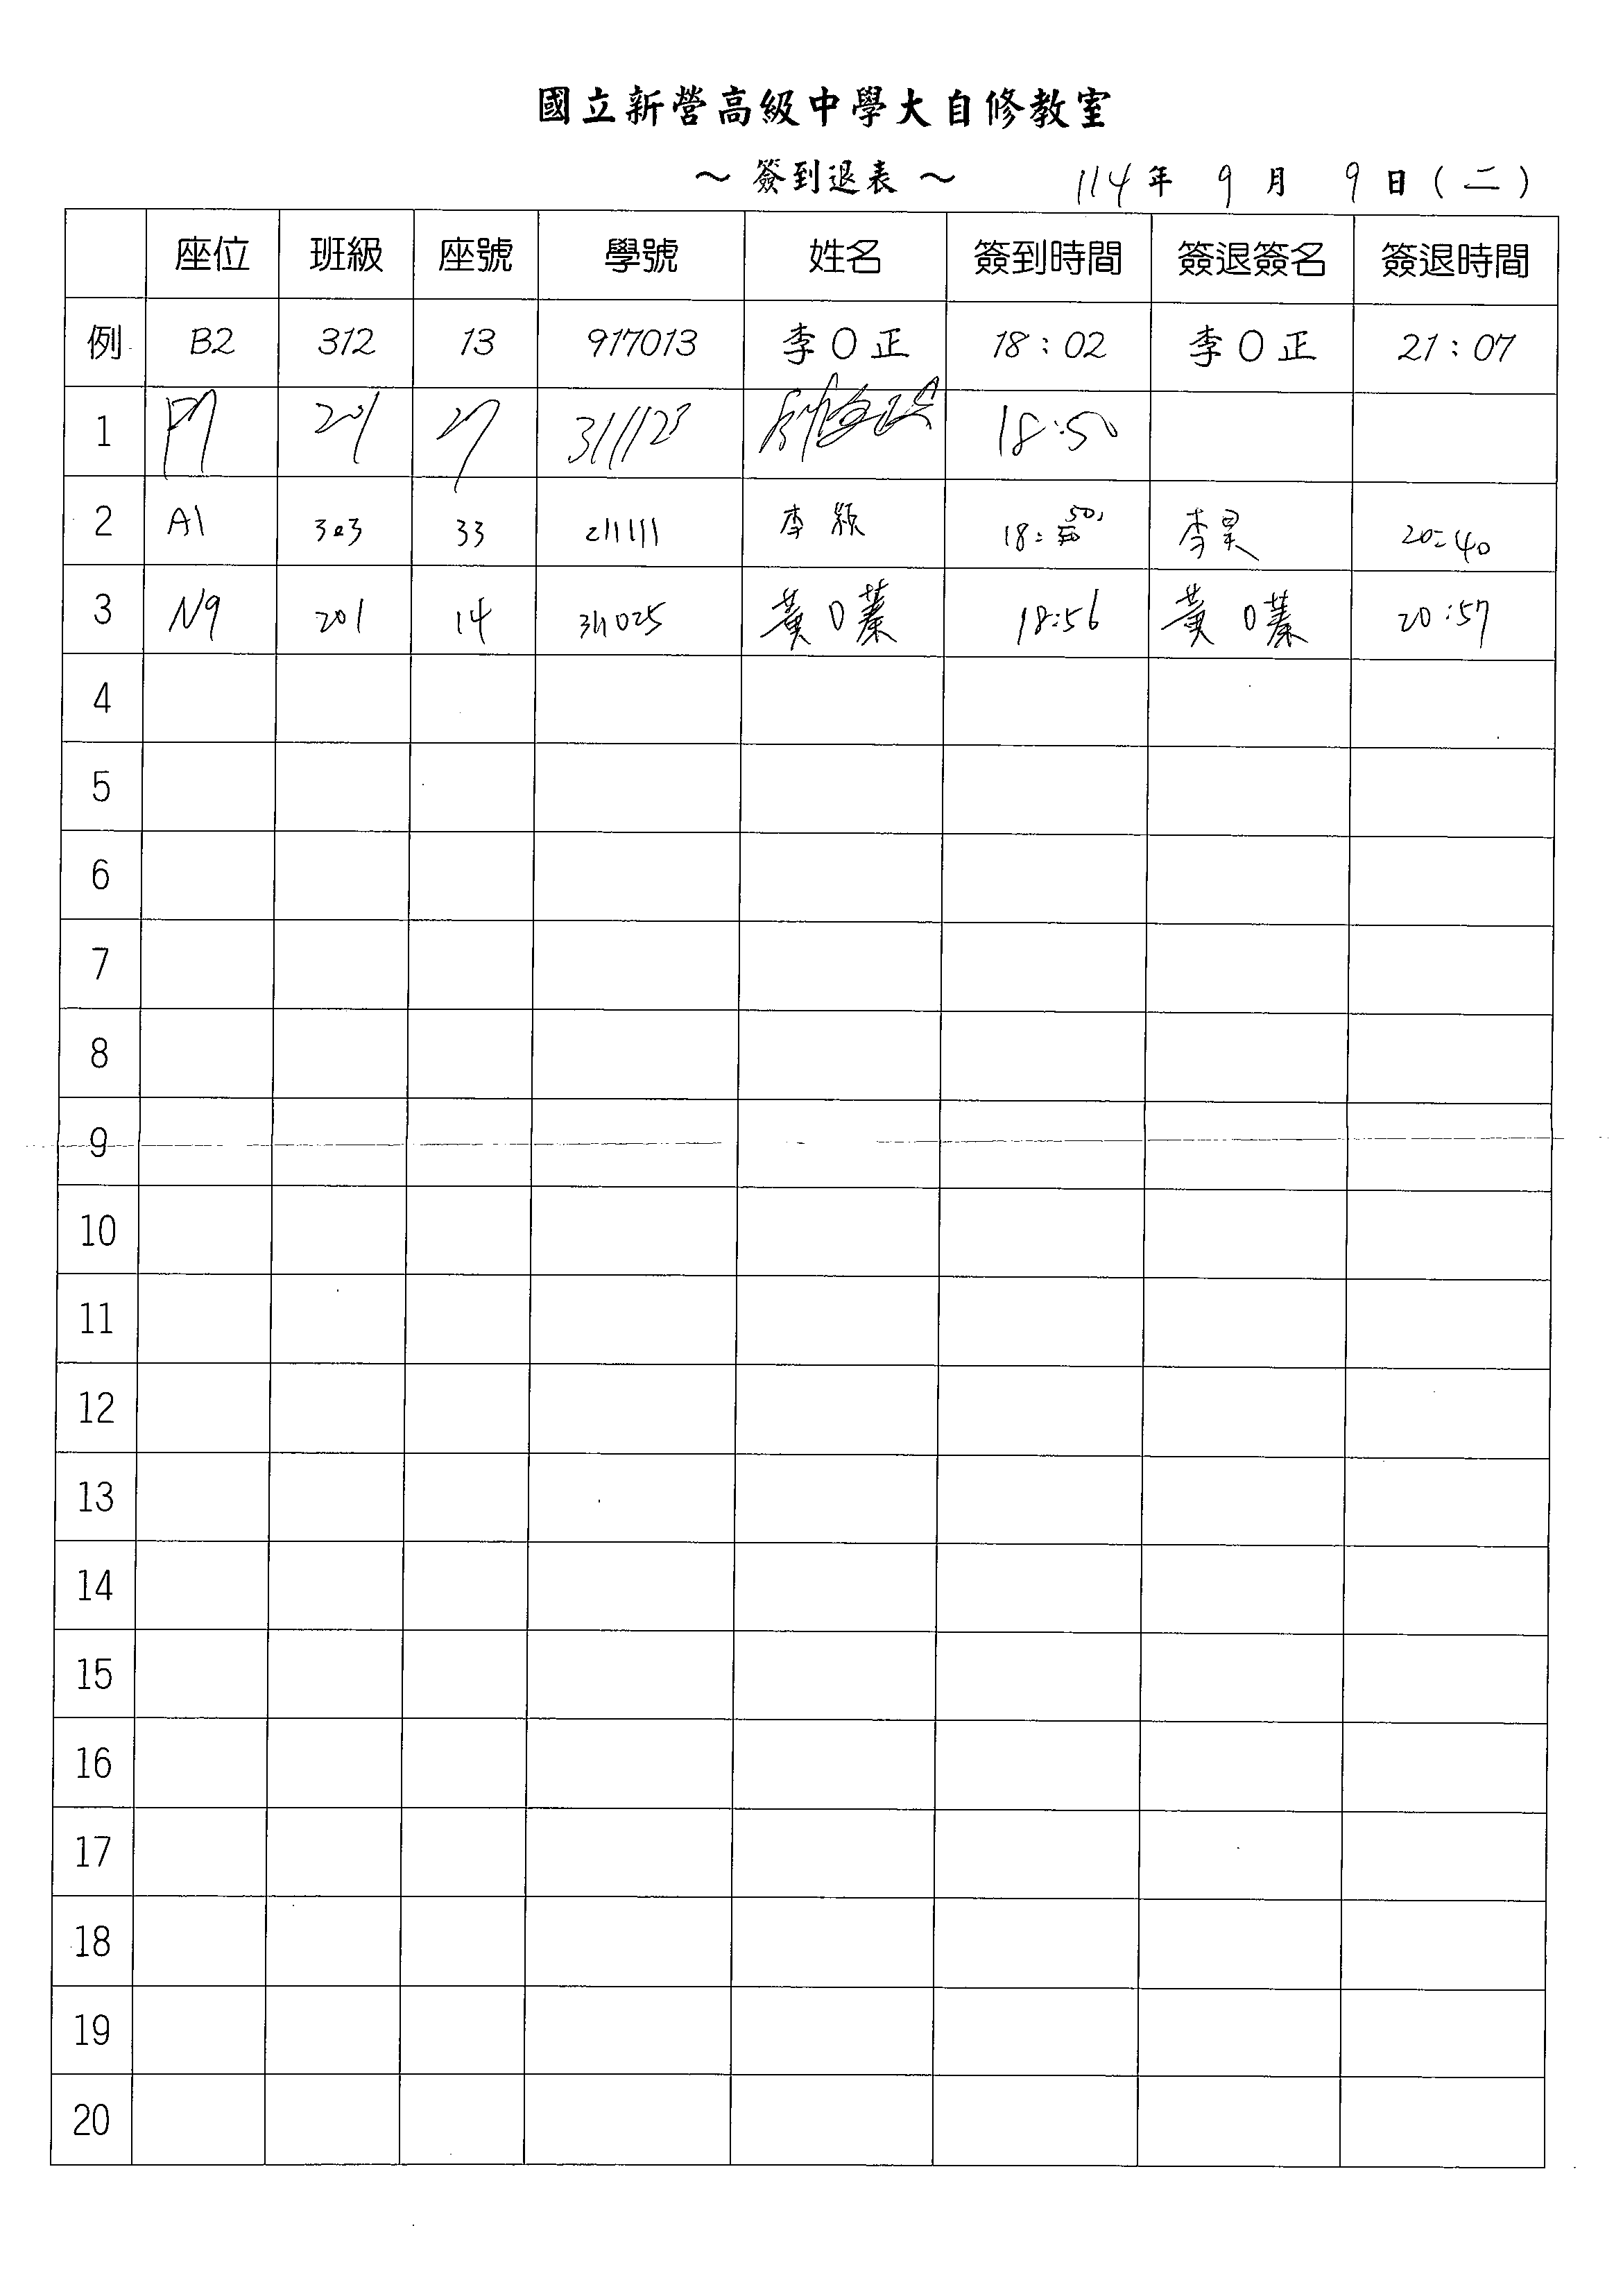 國立新營高級中學大自修教室
～ 簽到退表 ～ 114 年 9 月 9 日 (二)
座位 班級 座號 學號 姓名 簽到時間 簽退簽名 簽退時間
例 B2 312 13 917013 李O正 18:02 李O正 21:07
1 201 27 311123 18:50
2 A1 303 33 211111 李 18:50 李昊 20:40
3 N9 201 14 311025 黃O蓁 18:56 黃O蓁 20:57
4
5
6
7
8
9
10
11
12
13
14
15
16
17
18
19
20